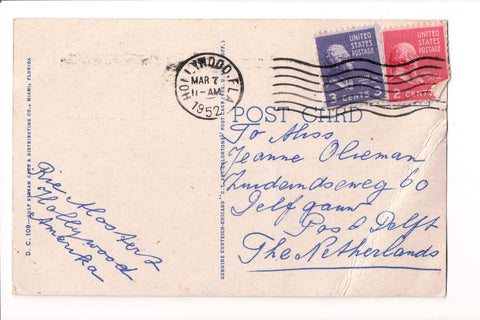 HOLLYWOOD, FLA
MAR 7
11-AM
1952
UNITED
STATES
POSTAGE
3 CENTS 3
UNITED
STATES
POSTAGE
2 CENTS
D. C. 109 GULF STREAM CARD & DISTRIBUTING CO., MIAMI, FLORIDA
GENUINE CURTEICH-CHICAGO "C.T. ART-COLORTONE" POST CARD
POST CARD
To Miss
Jeanne Olieman
Zuideindseweg 60
Delfgauw
Post Delft
The Netherlands
Hollywood
Amerika